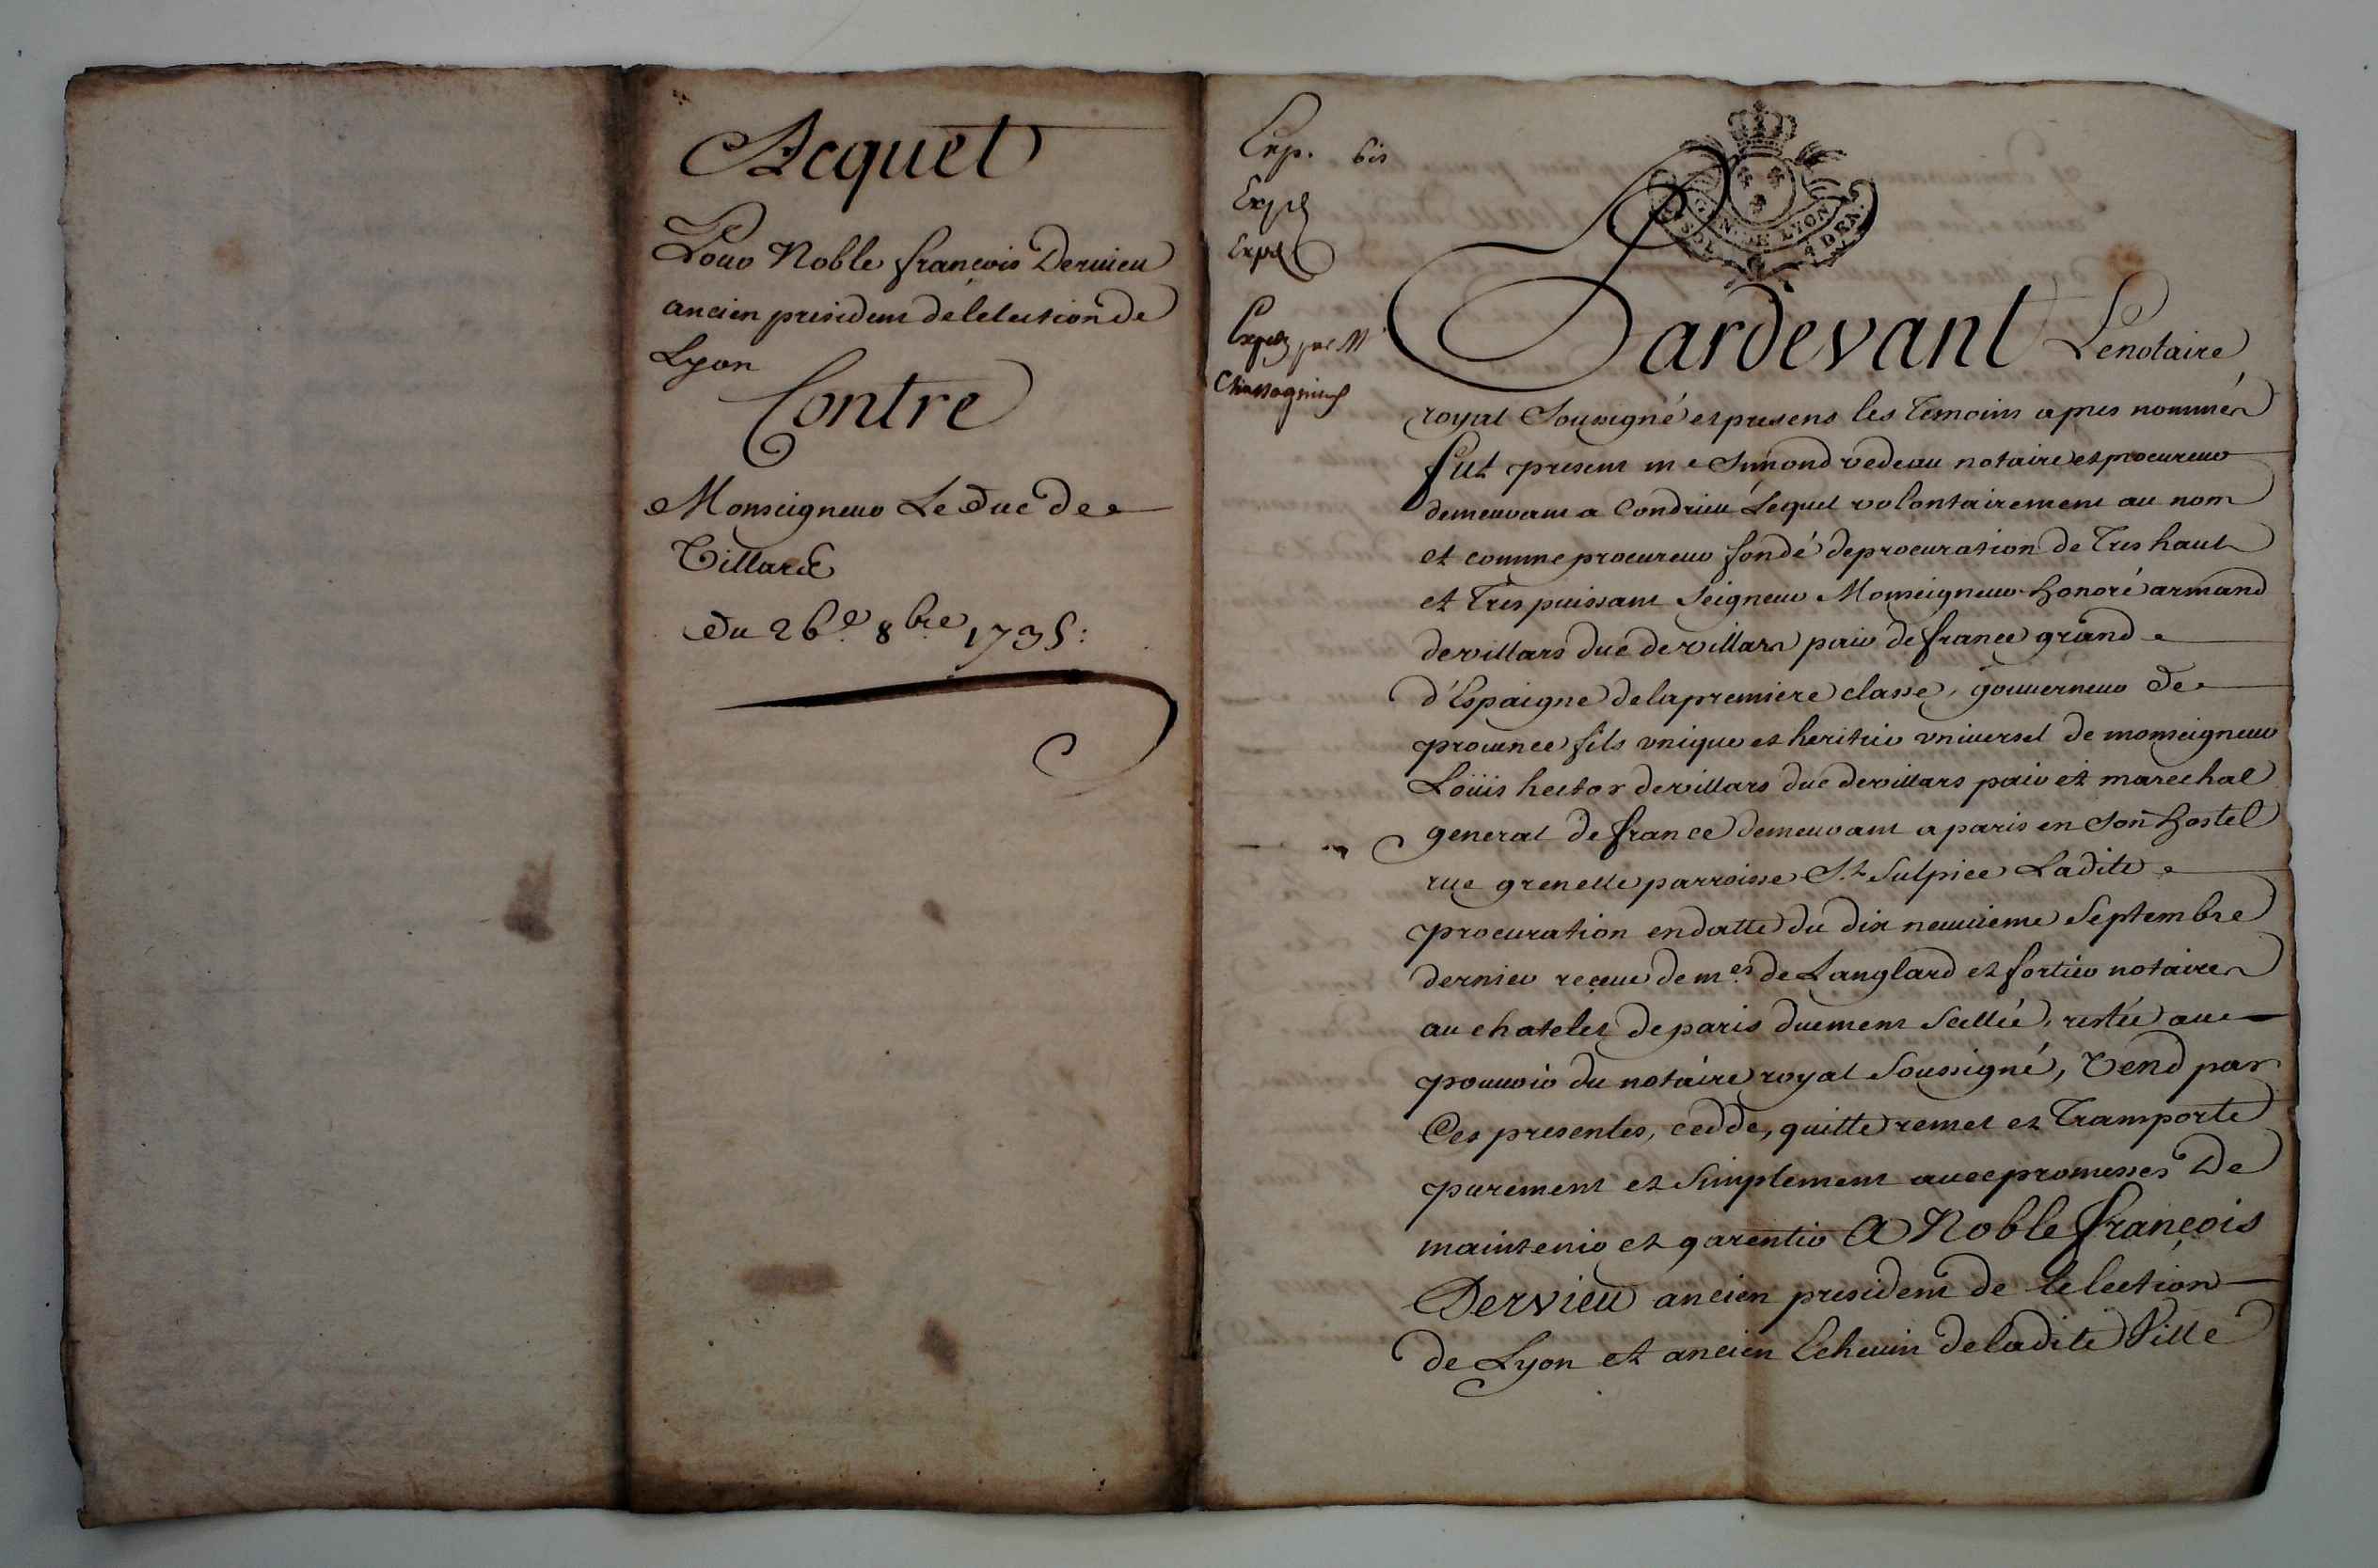 Acquet
Pour Noble françois Dervieu
ancien president de lelection de
Lyon
Contre
Monseigneur Le Duc de
Villars
Du 26e 8bre 1735:
Exp. bis
Expé
Expé
Expé par M
GEN. DE LYON
SOL. 4 DEN.
Pardevant Le notaire
royal Soussigné et presens les temoins apres nommés
fut present me Simond vedeau notaire et procureur
demeurant a Condrieu Lequel volontairement au nom
et comme procureur fondé de procuration de Tres haut
et Tres puissant Seigneur Monseigneur honoré armand
de villars duc de villars pair de france grand
d'Espaigne de la premiere classe, gouverneur de
prouence fils vnique et heritier vniuersel de monseigneur
Loüis hector de villars duc de villars pair et marechal
general de france demeurant a paris en son hostel
rue grenelle parroisse St Sulpice Ladite
procuration en datte du dix neuuieme Septembre
dernier reçeue de mes. de Langlard et fortier notaires
au chatelet de paris duement Scellée, restée au
pouuoir du notaire royal Soussigné, Vend par
Ces presentes, cedde, quitte remet et Transporte
purement et Simplement auec promesses De
maintenir et garentir A Noble françois
Dervieu ancien president de lelection
de Lyon et ancien Echeuin de ladite Ville